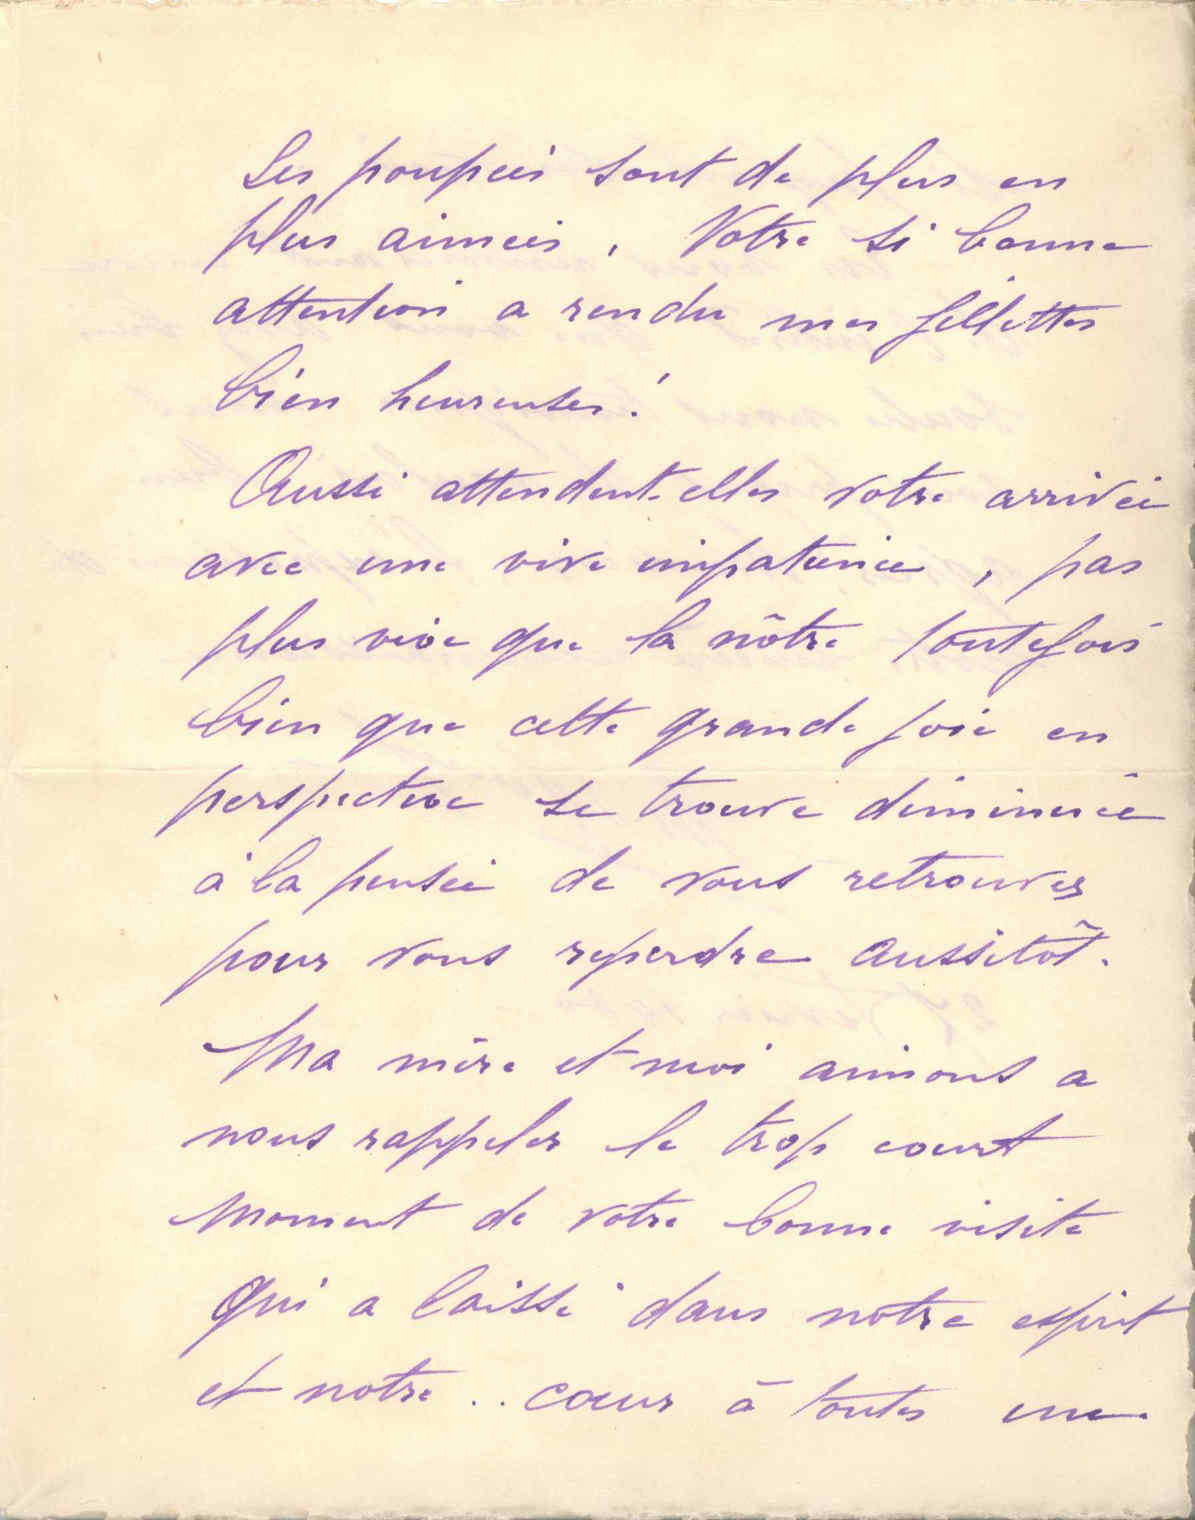 Les poupées sont de plus en
plus aimées, Votre si bonne
attention a rendu mes fillettes
bien heureuses !
Aussi attendent-elles votre arrivée
avec une vive impatience, pas
plus vive que la nôtre toutefois
bien que cette grande joie en
perspective se trouve diminuée
à la pensée de vous retrouver
pour vous reperdre aussitôt.
Ma mère et moi aimons a
nous rappeler le trop court
moment de votre bonne visite
qui a laissé dans notre esprit
et notre .. cœur à toutes une